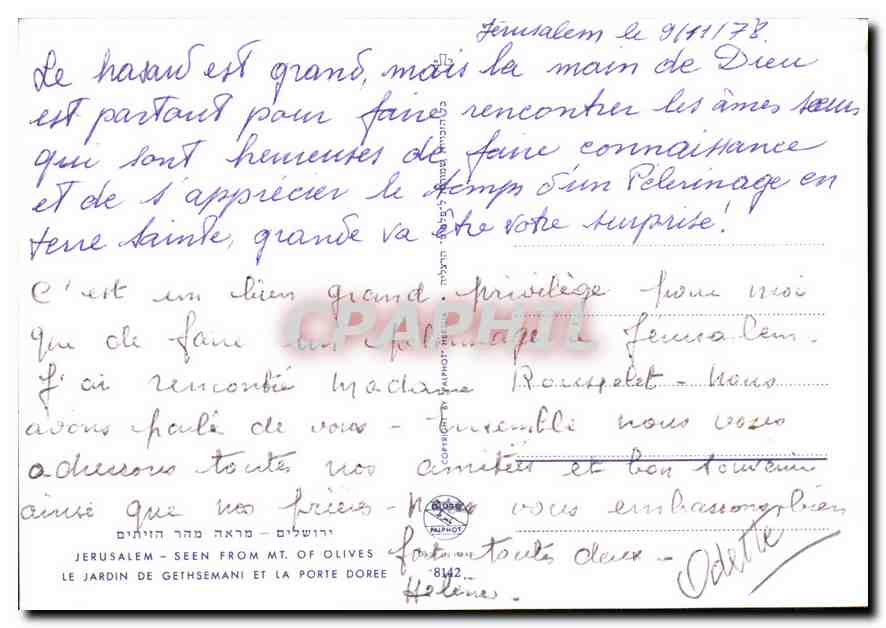 Jérusalem le 9/11/78.
Le hasard est grand, mais la main de Dieu
est partout pour faire rencontrer les âmes sœurs
qui sont heureuses de faire connaissance
et de s'apprécier le temps d'un Pélerinage en
terre Sainte, grande va être votre surprise!
C'est un bien grand privilège pour moi
que de faire un pélerinage à Jérusalem.
J'ai rencontré Madame Rousselet - Nous
avons parlé de vous - Ensemble nous vous
adressons toutes nos amitiés et bon souvenir
ainsi que nos prières - Nous vous embrassons bien
fort toutes deux -
Odette
Hélène.
CPAPHIL
COPYRIGHT BY PALPHOT
PALPHOT
ירושלים – מראה מהר הזיתים
JERUSALEM – SEEN FROM MT. OF OLIVES
LE JARDIN DE GETHSEMANI ET LA PORTE DOREE
8142